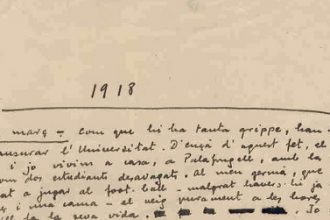 1918
març – com que hi ha tanta grippe, han
ausurar l'Universitat. D'ençà d'aquest fet, el
i jo vivim a casa, a Palafrugell, amb la
om dos estudiants desvagats. Al meu germà, que
at a jugar al foot-ball – malgrat haver-hi ja
ç i una cama – el veig purament a les hores
la seva vida. Jo